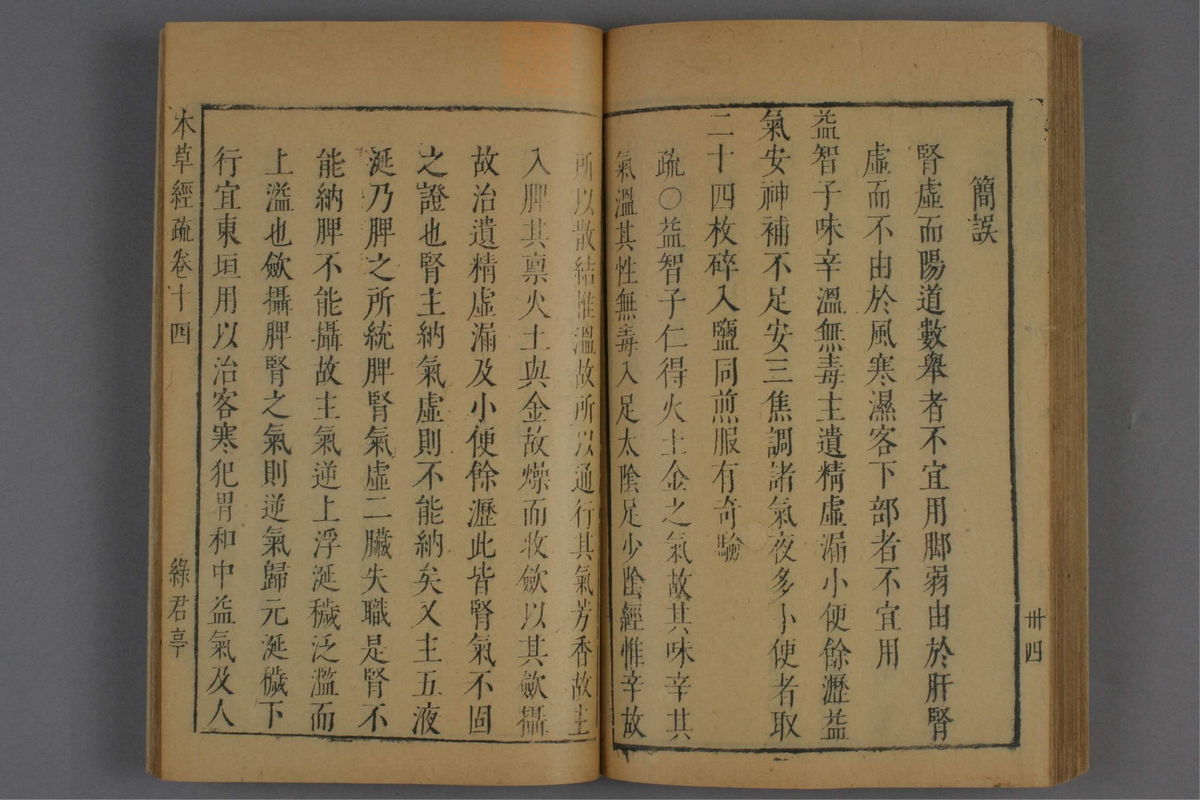 卅四
簡誤
腎虛而陽道數舉者不宜用脚弱由於肝腎
虛而不由於風寒濕客下部者不宜用
益智子味辛溫無毒主遺精虛漏小便餘瀝益
氣安神補不足安三焦調諸氣夜多小便者取
二十四枚碎入鹽同煎服有奇驗
疏○益智子仁得火土金之氣故其味辛其
氣溫其性無毒入足太陰足少陰經惟辛故
所以散結惟溫故所以通行其氣芳香故主
入脾其禀火土與金故燥而收歛以其歛攝
故治遺精虛漏及小便餘瀝此皆腎氣不固
之證也腎主納氣虛則不能納矣又主五液
涎乃脾之所統脾腎氣虛二臟失職是腎不
能納脾不能攝故主氣逆上浮涎穢泛濫而
上溢也歛攝脾腎之氣則逆氣歸元涎穢下
行宜東垣用以治客寒犯胃和中益氣及人
本草經疏卷十四
綠君亭